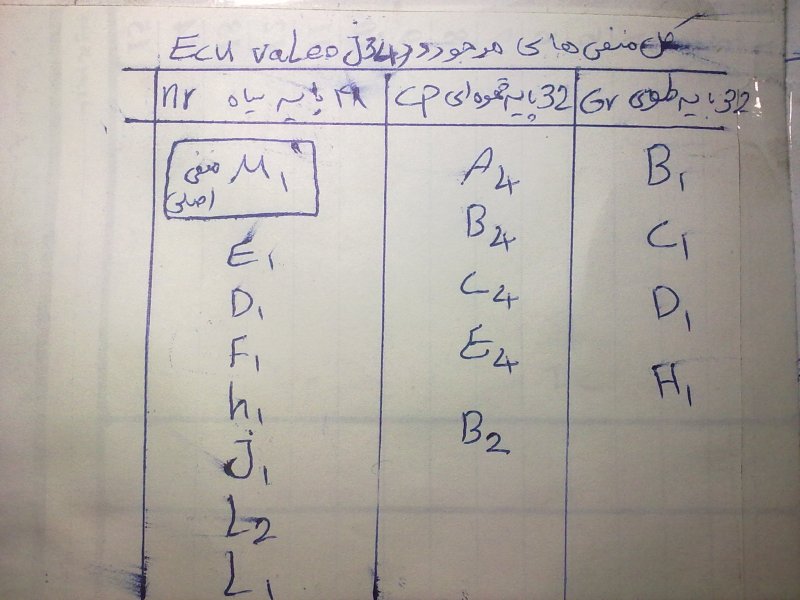 کل منفی های موجود در Ecu valeo j34
nr ۴۸ پایه سیاه
CP 32 پایه قهوه‌ای
Gr 32 پایه طوسی
M1 منفی اصلی
A4
B1
B4
C1
E1
C4
D1
D1
E4
F1
H1
h1
B2
j1
L2
L1